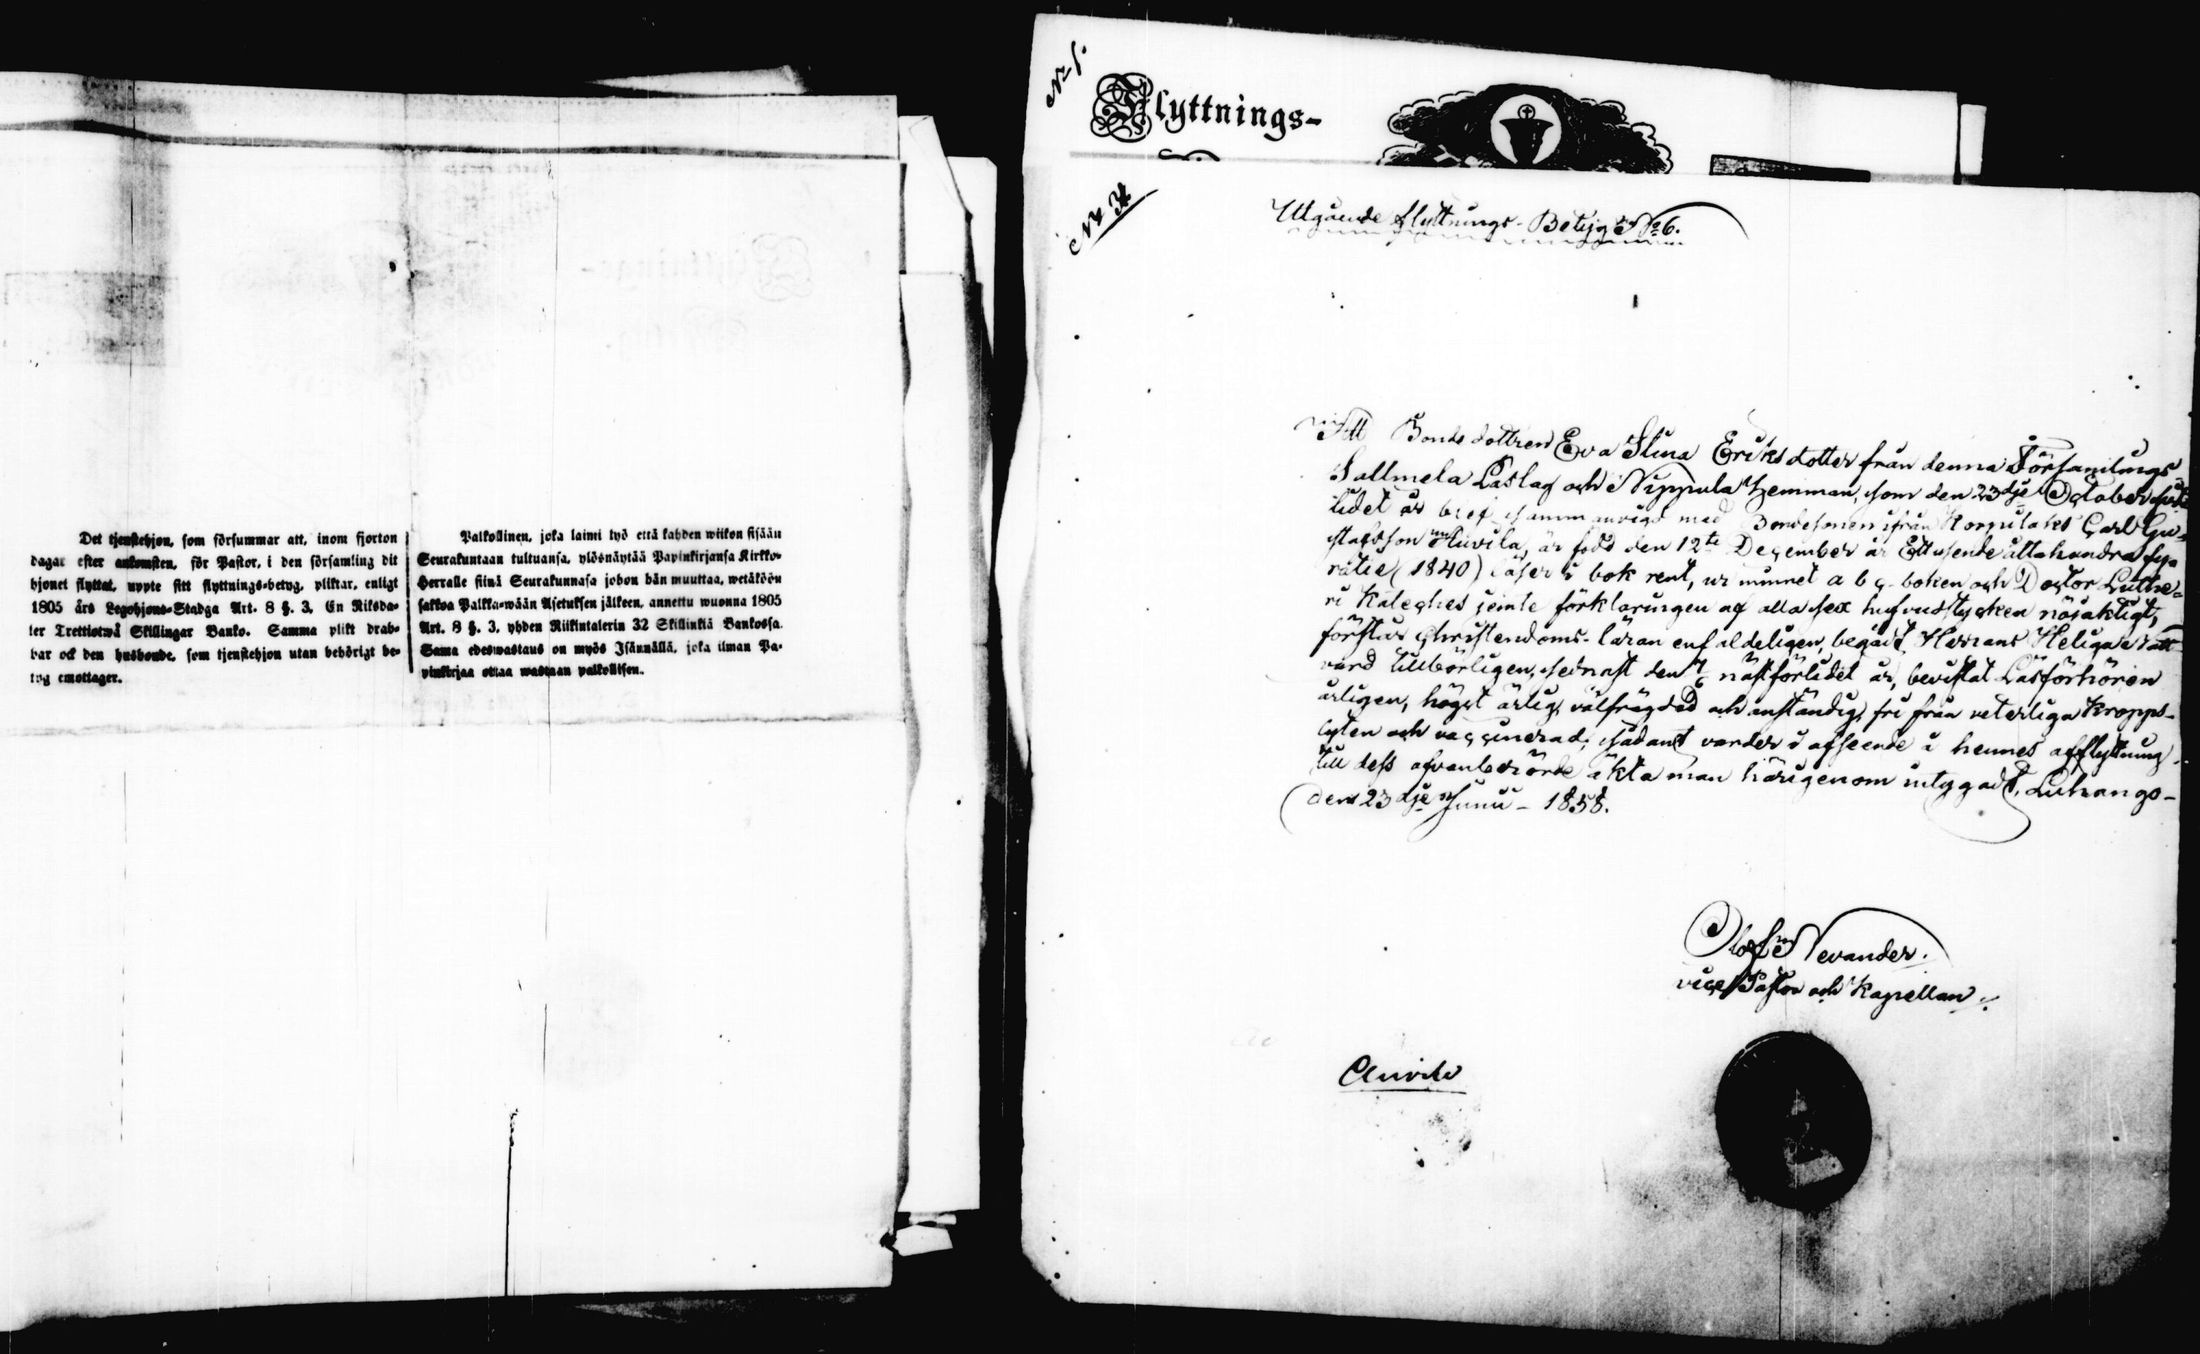 Det tjenstehjon, som försummar att, inom fjorton
dagar efter ankomsten, för Pastor, i den församling dit
hjonet flyttat, uppte sitt flyttnings-betyg, pliktar, enligt
1805 års Legohjons-Stadga Art. 8 §. 3, En Riksda-
ler Trettiotwå Skillingar Banko. Samma plikt drab-
bar ock den husbonde, som tjenstehjon utan behörigt be-
tyg emottager.
Palkollinen, joka laimi lyö että kahden wiikon sisään
Seurakuntaan tultuansa, ylösnäytää Papinkirjansa Kirkko-
Herralle siinä Seurakunnasa johon hän muuttaa, wetäköön
sakkoa Palkka-wään Asetuksen jälkeen, annettu wuonna 1805
Art. 8 §. 3, yhden Riikintalerin 32 Skillinkiä Bankossa.
Sama edeswastaus on myös Isännällä, joka ilman Pa-
pinkirjaa ottaa wastaan palkollisen.
No 1.
Flyttnings-
No 4
Utgående Flyttnings-Betyg No 6.
Att Bondsdottren Eva Stina Eriksdotter från denna Församlings
Salmela Läslag och Nippula Hemman, som den 23dje October
lidet år blef sammanvigd med Bondesonen ifrån Korpilaks Carl Gu-
stafsson Auvila, är född den 12te December år Ett usende åttahundra fyr-
ratie (1840) läser i bok rent, ur minnet a b c-boken och Doctor Luthe-
ri Kateches jemte förklaringen af alla sex hufvudstycken nöjaktigt,
förstår Christendoms-läran enfaldeligen, begått Herrans Heliga Natt-
vard tillbörligen, sednast den nästförlidet år, bevistat Läsförhören
årligen, högst ärlig, välfrägdad och anständig, fri från veterliga Kropps-
lyten och vaccinerad; sådant varder i afseende å hennes afflyttning
till dess ofvanberörde äkta man härigenom intygadt, Luhango-
den 23dje Junii - 1858.
Olof Nevander.
vice Pastor och Kapellan
Auvila